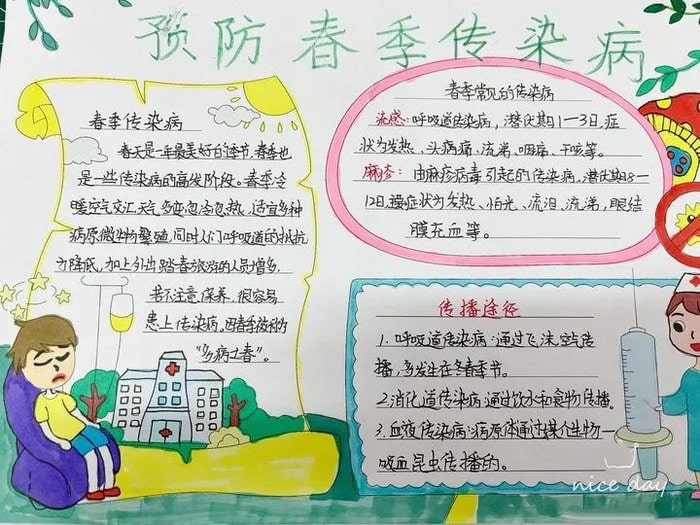 预防春季传染病
春季传染病
春天是一年最美好的季节,春季也
是一些传染病的高发阶段。春季冷
暖空气交汇,天气多变,忽冷忽热,适宜多种
病原微生物繁殖,同时人们呼吸道的抵抗
力降低,加上外出踏春旅游的人员增多,
若不注意保养,很容易
患上传染病,因春季被称为
“多病之春”。
春季常见的传染病
流感:呼吸道传染病,潜伏期1—3日,症
状为发热、头痛、流涕、咽痛、干咳等。
麻疹:由麻疹病毒引起的传染病,潜伏期8—
12日,症状为发热、怕光、流泪、流涕,眼结
膜充血等。
传播途径
1.呼吸道传染病:通过飞沫,空气传
播,多发生在冬春季节。
2.消化道传染病:通过饮水和食物传播。
3.血液传染病:病原体通过媒介生物—
吸血昆虫传播的。
nice day